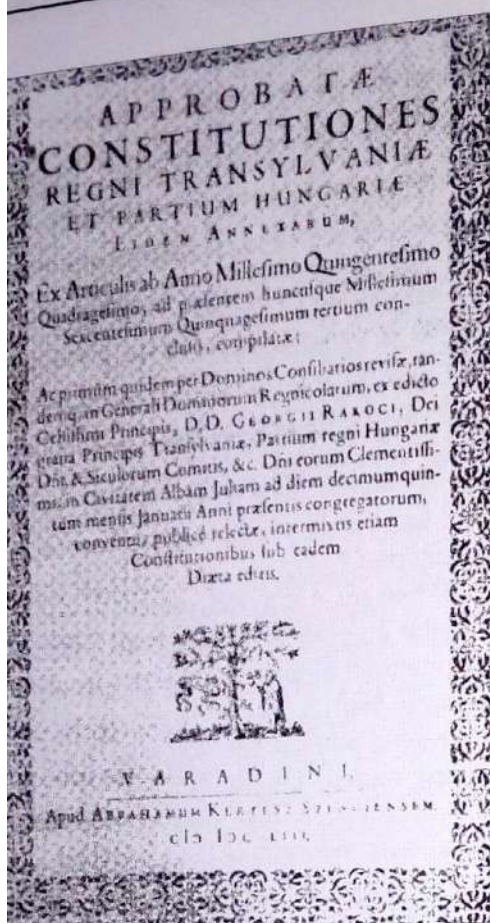 APPROBATÆ
CONSTITUTIONES
REGNI TRANSYLVANIÆ
ET PARTIUM HUNGARIÆ
EIDEM ANNEXARUM,
Ex Articulis ab Anno Millesimo Quingentesimo
Quadragesimo, ad præsentem huncusque Millesimum
Sexcentesimum Quinquagesimum tertium con-
clusis, compilatæ:
Ac primùm quidem per Dominos Consiliarios revisæ, tan-
demq; in Generali Dominorum Regnicolarum, ex edicto
Celsissimi Principis, D.D. GEORGII RAKOCI, Dei
gratia Principis Transylvaniæ, Partium regni Hungariæ
Dñi, & Siculorum Comitis, &c. Dñi eorum Clementissi-
mi; in Civitatem Albam Juliam ad diem decimumquin-
tum mensis Januarii Anni præsentis congregatorum,
conventu, publicè relectæ, intermixtis etiam
Constitutionibus sub eadem
Diæta editis.
VARADINI,
Apud ABRAHAMUM KERTESZ SZENCIENSEM.
cIɔ Iɔc LIII.